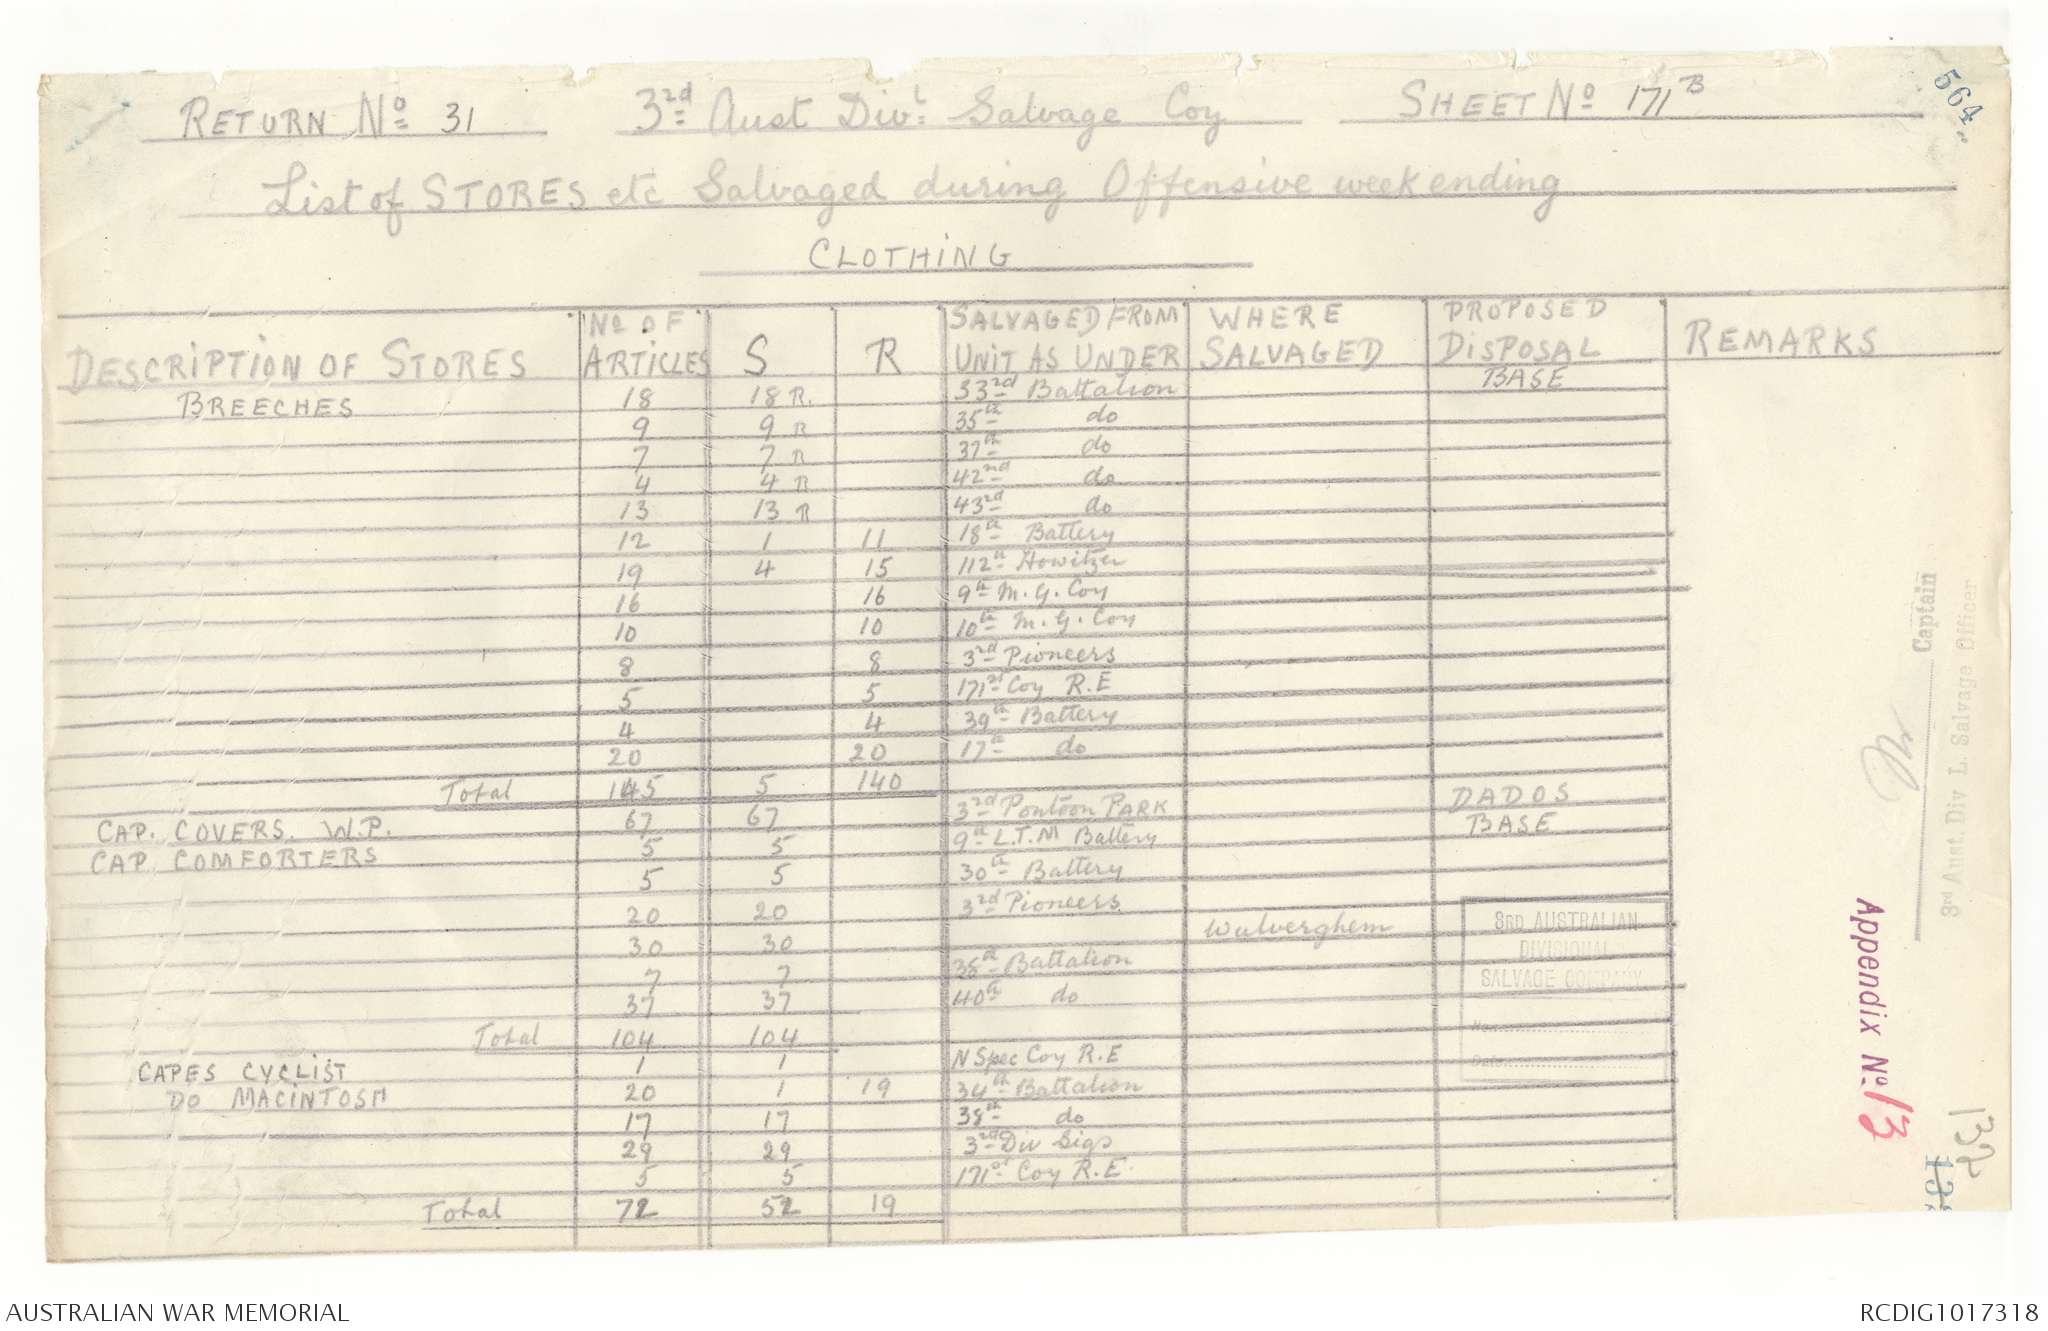 RETURN No 31 3rd Aust Divl Salvage Coy SHEET No 171B
564
List of STORES etc Salvaged during Offensive week ending
CLOTHING
DESCRIPTION OF STORES No OF ARTICLES S R SALVAGED FROM UNIT AS UNDER WHERE SALVAGED PROPOSED DISPOSAL REMARKS
BREECHES 18 18 R. 33rd Battalion BASE
9 9 R 35th do
7 7 R 37th do
4 4 R 42nd do
13 13 R 43rd do
12 1 11 18th Battery
19 4 15 112th Howitzer
16 16 9th M.G. Coy
10 10 10th M.G. Coy
8 8 3rd Pioneers
5 5 171st Coy R.E
4 4 39th Battery
20 20 17th do
Total 145 5 140
CAP. COVERS. W.P. 67 67 3rd Pontoon PARK DADOS
CAP COMFORTERS 5 5 9th L.T.M Battery BASE
5 5 30th Battery
20 20 3rd Pioneers
30 30 Wulverghem
7 7 38th Battalion
37 37 40th do
Total 104 104
CAPES CYCLIST 1 1 N Spec Coy R.E
DO MACINTOSH 20 1 19 34th Battalion
17 17 38th do
29 29 3rd Div Sigs
5 5 171st Coy R.E.
Total 72 52 19
3RD AUSTRALIAN
DIVISIONAL
SALVAGE COMPANY
No.
Date
Captain
3rd Aust. Div L. Salvage Officer
Appendix No. 13
132
AUSTRALIAN WAR MEMORIAL RCDIG1017318